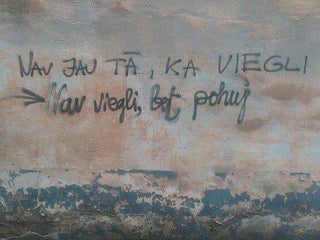 NAV JAU TĀ, KA VIEGLI
Nav viegli, bet pohuj